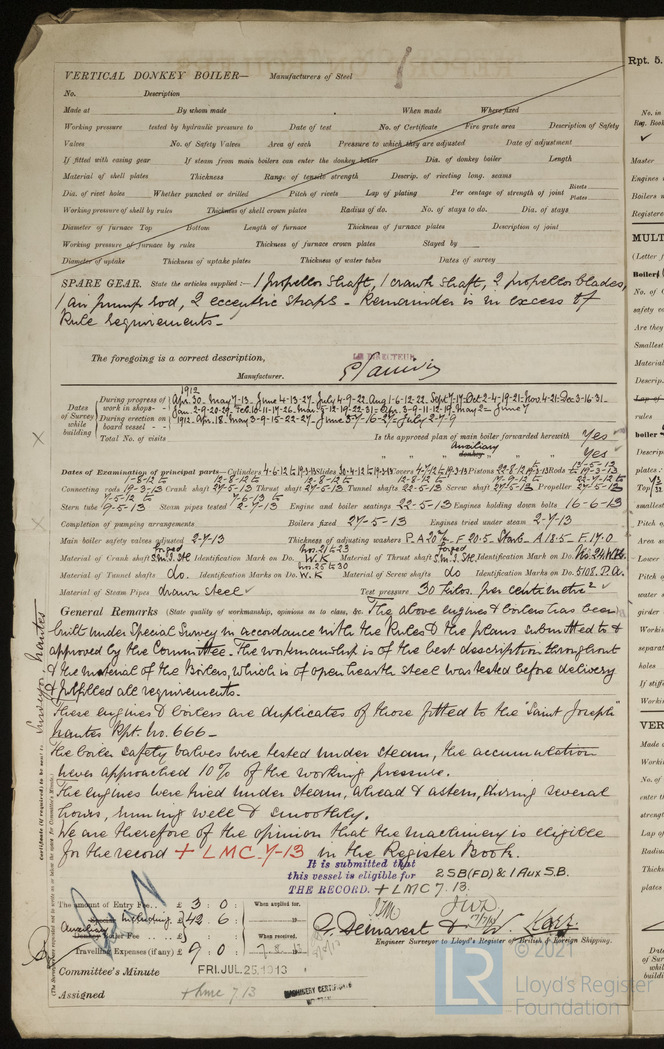 VERTICAL DONKEY BOILER— Manufacturers of Steel
No. Description
Made at By whom made When made Where fixed
Working pressure tested by hydraulic pressure to Date of test No. of Certificate Fire grate area Description of Safety
Valves No. of Safety Valves Area of each Pressure to which they are adjusted Date of adjustment
If fitted with easing gear If steam from main boilers can enter the donkey boiler Dia. of donkey boiler Length
Material of shell plates Thickness Range of tensile strength Descrip. of riveting long. seams
Dia. of rivet holes Whether punched or drilled Pitch of rivets Lap of plating Per centage of strength of joint Rivets Plates
Working pressure of shell by rules Thickness of shell crown plates Radius of do. No. of stays to do. Dia. of stays
Diameter of furnace Top Bottom Length of furnace Thickness of furnace plates Description of joint
Working pressure of furnace by rules Thickness of furnace crown plates Stayed by
Diameter of uptake Thickness of uptake plates Thickness of water tubes Dates of survey
SPARE GEAR. State the articles supplied :— 1 propellor shaft, 1 crank shaft, 2 propellor blades,
1 air pump rod, 2 eccentric straps - Remainder is in excess of
Rule requirements -
The foregoing is a correct description,
LE DIRECTEUR
Manufacturer.
1912
Dates of Survey while building
During progress of work in shops - - Apr. 30. May 7-13. June 4-13-27. July 4-9-22. Aug 1-6-12-22. Sept 7-17. Oct 2-4-19-21. Nov. 4-21. Dec 3-16-31.
Jan. 2-9-20-29. Feb. 10-11-17-26. Mar. 8-12-19-22-31. Apr. 3-9-11-12-19. May 2. June 7
During erection on board vessel - - 1912. Apr. 18. May 3-9-15-22-27. June 3-7-16-27. July 2-7-9
Total No. of visits
Is the approved plan of main boiler forwarded herewith Yes
" " " Auxiliary donkey " " Yes
Dates of Examination of principal parts—Cylinders 4-6-12 to 19-3-13 Slides 30-4-12 to 19-3-13 Covers 4-7-12 to 19-3-13 Pistons 22-8-12 Rods 17-3-13
Connecting rods 1-8-12 to 19-3-13 Crank shaft 12-8-12 to 27-5-13 Thrust shaft 12-8-12 to 27-5-13 Tunnel shafts 12-8-12 to 22-5-13 Screw shaft 17-9-12 to 27-5-13 Propeller 22-7-12 to 27-5-13
Stern tube 7-5-12 to 9-5-13 Steam pipes tested 7-6-13 to 2-7-13 Engine and boiler seatings 22-5-13 Engines holding down bolts 16-6-13
Completion of pumping arrangements Boilers fixed 27-5-13 Engines tried under steam 2-7-13
Main boiler safety valves adjusted 2-7-13 Thickness of adjusting washers P. A 20 F 20.5 Starb. A 18.5 - F. 17.0
Material of Crank shaft forged S.M.S. Stl Identification Mark on Do. Nos. 21 to 23 W.K Material of Thrust shaft forged S.M.S. Stl Identification Mark on Do. No. 24 W.K.
Material of Tunnel shafts do. Identification Marks on Do. Nos. 25 to 30 W.K Material of Screw shafts do Identification Marks on Do. 5108. P.A.
Material of Steam Pipes drawn steel ✓ Test pressure 30 kilos. per centimetre² ✓
General Remarks (State quality of workmanship, opinions as to class, &c. The above engines & boilers has been
built under Special Survey in accordance with the Rules & the plans submitted to &
approved by the Committee. The workmanship is of the best description throughout
& the material of the Boilers, which is of open hearth steel was tested before delivery
& fulfilled all requirements.
These engines & boilers are duplicates of those fitted to the "Saint Joseph"
Nantes Rpt. No. 666 -
The boiler safety valves were tested under steam, the accumulation
never approached 10% of the working pressure.
The engines were tried under steam, ahead & astern, during several
hours, running well & smoothly.
We are therefore of the opinion that the machinery is eligible
for the record + LMC. 7-13 in the Register Book.
It is submitted that
this vessel is eligible for 2 SB (FD) & 1 Aux S.B.
THE RECORD. + LMC 7. 13.
The amount of Entry Fee .. £ 3 : 0 : When applied for.
Special including £ 42 : 6 :
Auxiliary Donkey Boiler Fee .. £
When received.
Travelling Expenses (if any) £ 9 : 0 : 7. 8. 13
G. Demarest & W. Kerr
Engineer Surveyor to Lloyd's Register of British & Foreign Shipping.
Committee's Minute FRI. JUL 25. 1913
Assigned + LMC 7. 13
MACHINERY CERTIFICATE
Surveyor, Nantes
© 2021
Lloyd's Register
Foundation
LR
Rpt. 5.
No. in
Reg. Book
Master
Engines
Boilers
Registere
MULT
(Letter
Boilers
No. of
safety va
Are they
Smallest
Material
Descrip.
Lap of
rules
boiler
Descrip
plates :
Top
smallest
Pitch of
Area s
Lower
Pitch of
water s
girder
Working
separat
holes
If stiffe
Worki
VER
Made
Worki
No. of
enter th
strengt
Lap of
Radiu
Thick
plates
Dat
of Sur
whil
buildi